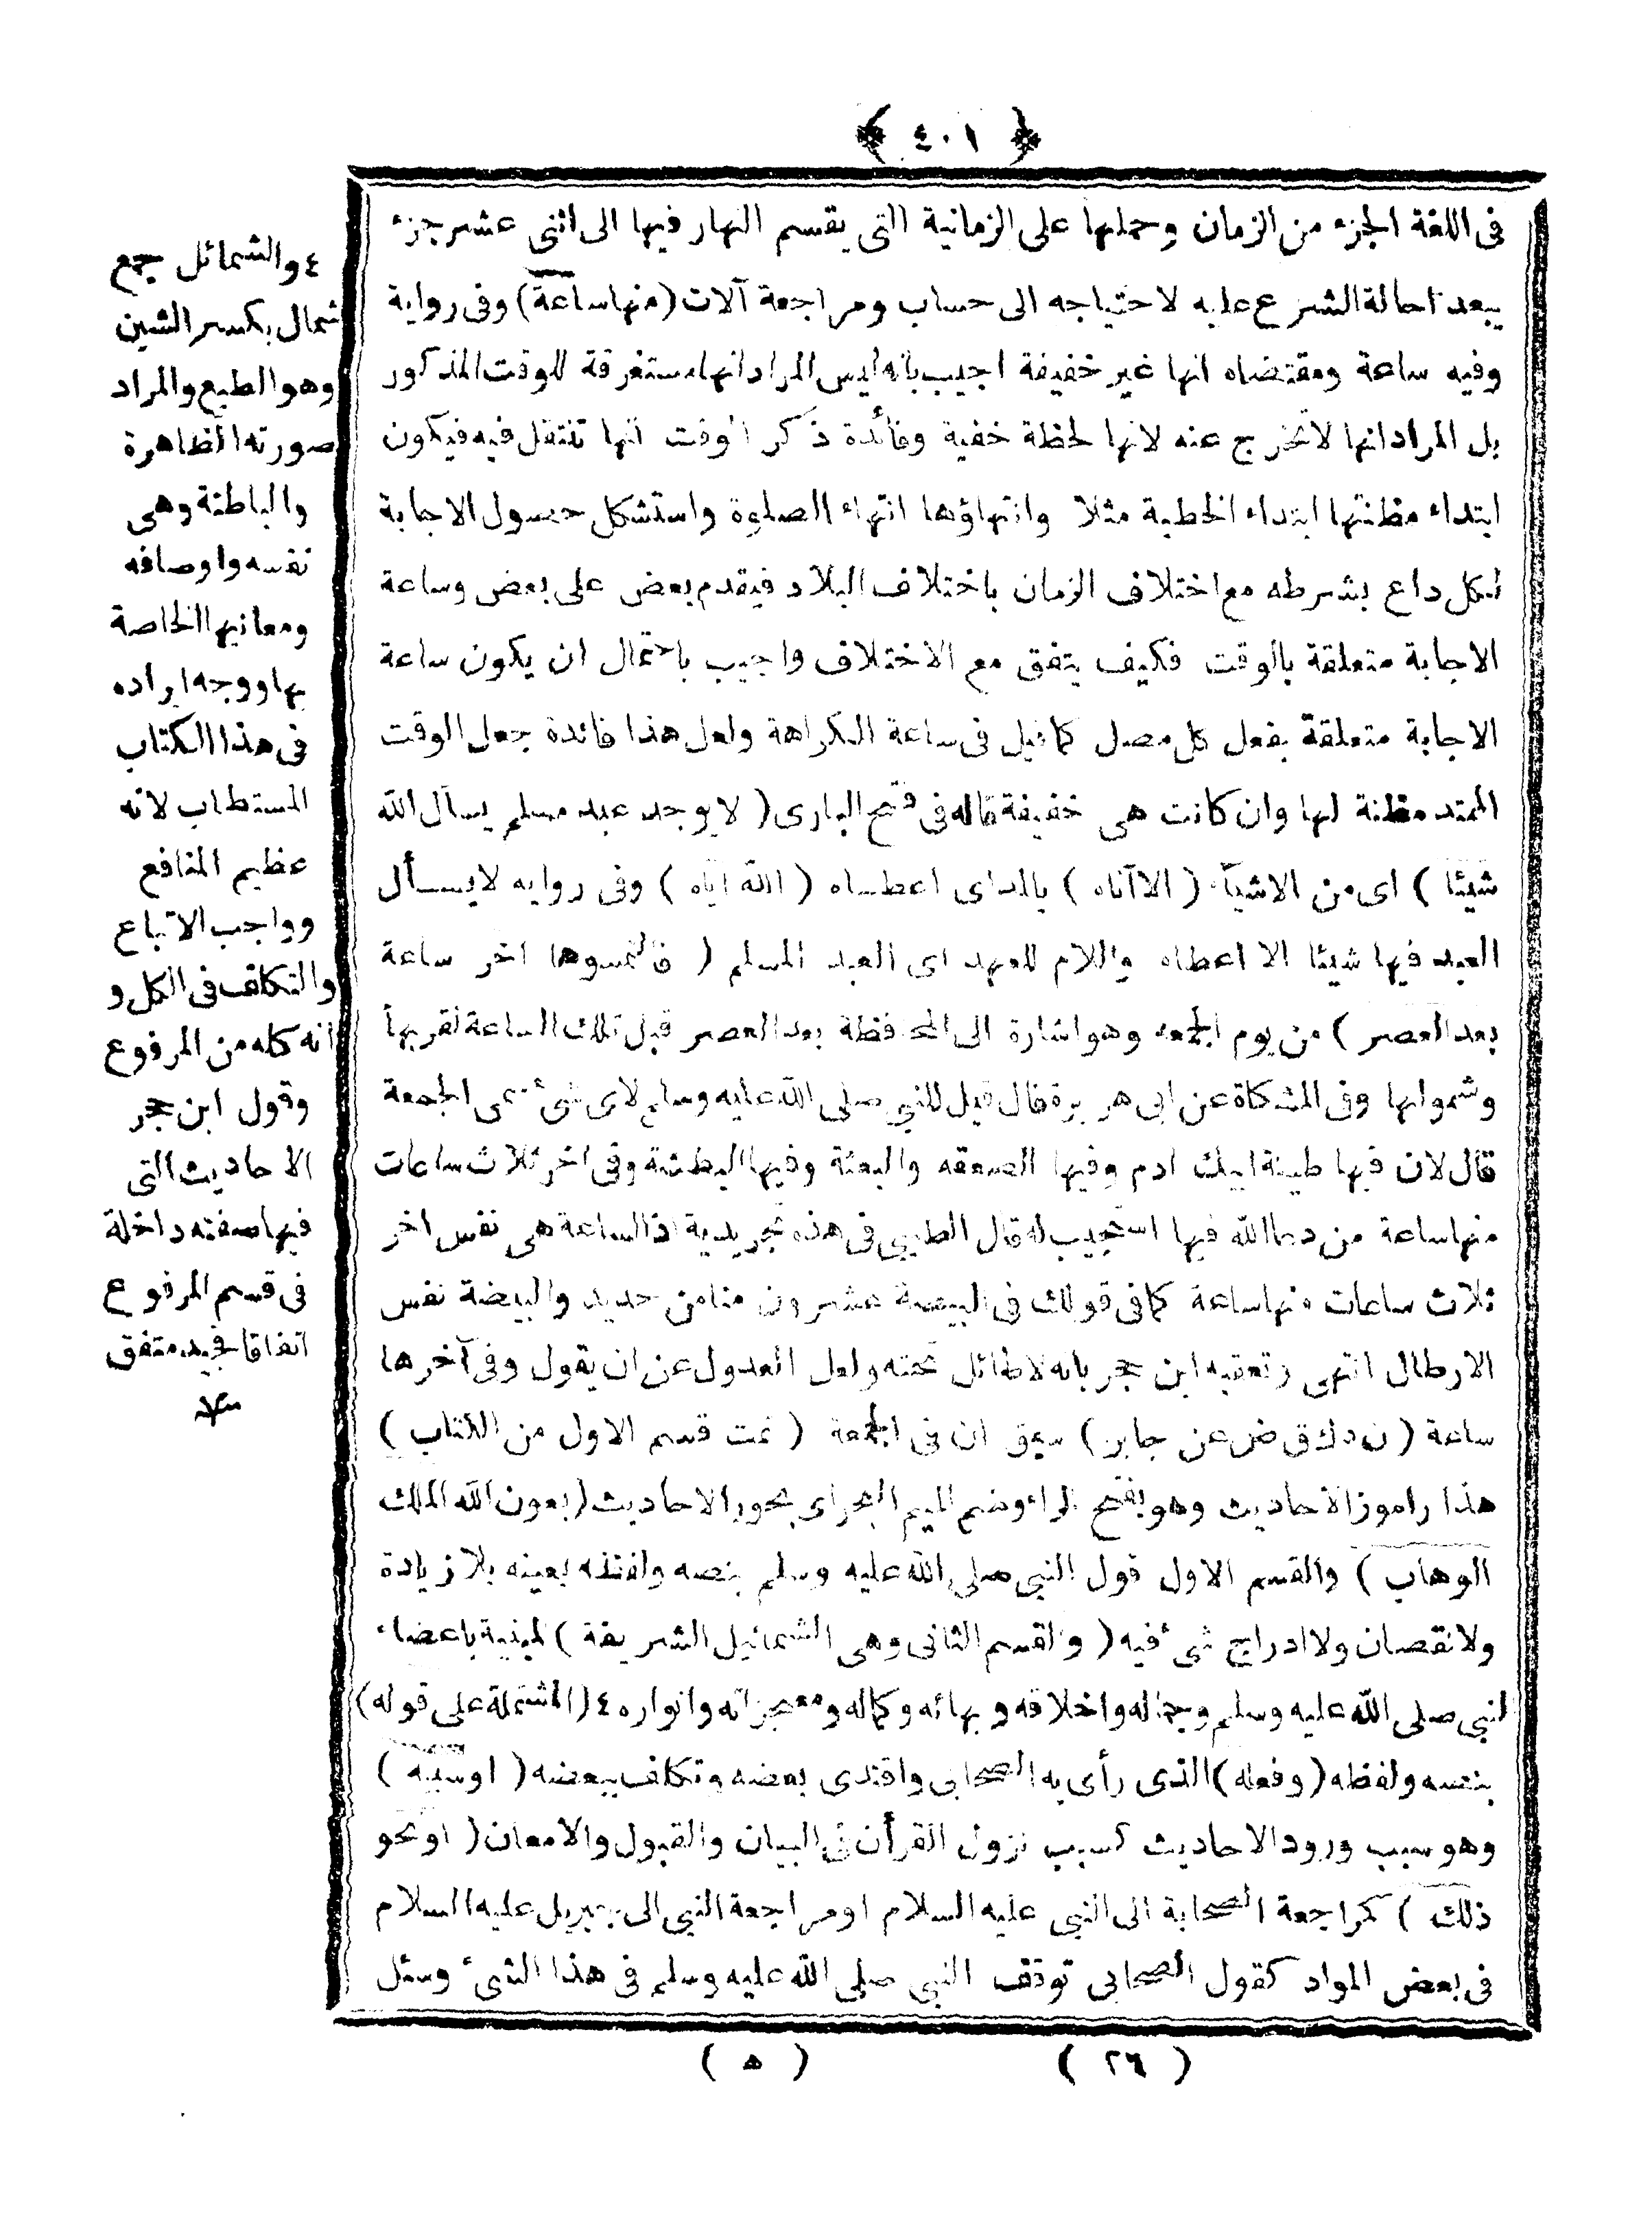 ﴿ ٤٠١ ﴾
فى اللغة الجزء من الزمان وحملها على الزمانية التى يقسم النهار فيها الى اثنى عشر جزء
يبعد احالة الشرع عليه لاحتياجه الى حساب ومراجعة آلات (منها ساعة) وفى رواية
وفيه ساعة ومقتضاه انها غير خفيفة اجيب بانه ليس المراد انها مستغرقة للوقت المذكور
بل المراد انها لا تخرج عنه لانها لحظة خفية وفائدة ذكر الوقت انها تنتقل فيه فيكون
ابتداء مظنتها ابتداء الخطبة مثلا وانتهاؤها انتهاء الصلوة واستشكل حصول الاجابة
لكل داع بشرطه مع اختلاف الزمان باختلاف البلاد فيقدم بعض على بعض وساعة
الاجابة متعلقة بالوقت فكيف يتفق مع الاختلاف واجيب باحتمال ان يكون ساعة
الاجابة متعلقة بفعل كل مصل كما قيل فى ساعة الكراهة ولعل هذا فائدة جعل الوقت
الممتد مظنة لها وان كانت هى خفيفة قاله فى فتح البارى ( لا يوجد عبد مسلم يسأل الله
شيئا ) اى من الاشياء ( الا آتاه ) بالمد اى اعطاه ( الله اياه ) وفى روايه لا يسأل
العبد فيها شيئا الا اعطاه واللام للعهد اى العبد المسلم ( فالتمسوها اخر ساعة
بعد العصر ) من يوم الجمعه وهو اشارة الى المحافظة بعد العصر قبل تلك الساعة لقربها
وشمولها وفى المشكاة عن ابى هريرة قال قيل للنبى صلى الله عليه وسلم لاى شئ سمى الجمعة
قال لان فيها طينة ابيك ادم وفيها الصعقه والبعثة وفيها البطشة وفى اخر ثلاث ساعات
منها ساعة من دعا الله فيها استجيب له قال الطيبى فى هذه تجريدية اذ الساعة هى نفس اخر
ثلاث ساعات منها ساعة كما فى قولك فى البيضة عشرون منا من حديد والبيضة نفس
الارطال انتهى وتعقبه ابن حجر بانه لا طائل تحته ولعل العدول عن ان يقول وفى آخرها
ساعة ( ن د ك ق ض عن جابر ) سبق ان فى الجمعة ( تمت قسم الاول من الكتاب )
هذا راموز الاحاديث وهو بفتح الراء وضم الميم البحر اى بحور الاحاديث ( بعون الله الملك
الوهاب ) والقسم الاول قول النبى صلى الله عليه وسلم بنصه ولفظه بعينه بلا زيادة
ولا نقصان ولا ادراج شئ فيه ( والقسم الثانى وهى الشمائيل الشريفة ) المبنية باعضاء
النبى صلى الله عليه وسلم وجماله واخلاقه وبهائه وكماله ومعجزاته وانواره ٤ ( المشتملة على قوله )
بنصه ولفظه ( وفعله ) الذى رأى به الصحابى واقتدى بعضه وتكلف ببعضه ( او سببه )
وهو سبب ورود الاحاديث كسبب نزول القرأن فى البيان والقبول والامعان ( او نحو
ذلك ) كمراجعة الصحابة الى النبى عليه السلام او مراجعة النبى الى جبريل عليه السلام
فى بعض المواد كقول الصحابى توقف النبى صلى الله عليه وسلم فى هذا الشئ وسئل
( ٢٦ ) ( ٥ )
٤ والشمائل جمع
شمال بكسر الشين
وهو الطبع والمراد
صورته الظاهرة
والباطنة وهى
نفسه واوصافه
ومعانيها الخاصة
بها ووجه ايراده
فى هذا الكتاب
المستطاب لانه
عظيم المنافع
وواجب الاتباع
والتكلف فى الكل و
انه كله من المرفوع
وقول ابن حجر
الاحاديث التى
فيها صفته داخلة
فى قسم المرفوع
اتفاقا متفق